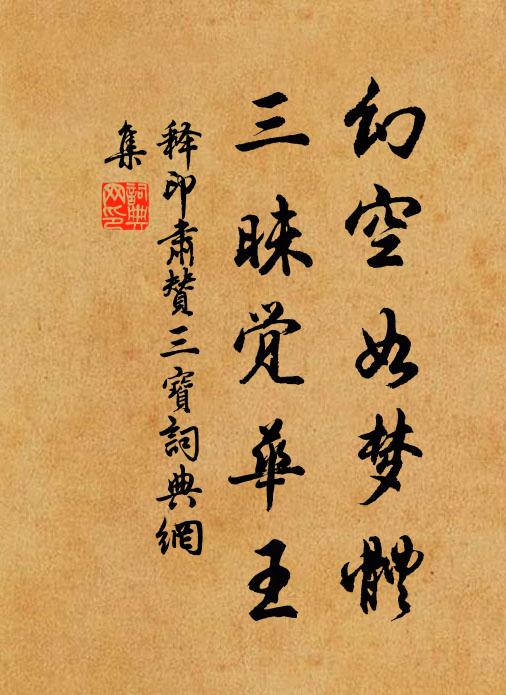 幻空如梦體
三昧觉華王
释印肃赞三寶詞典網
集
詞典
网印